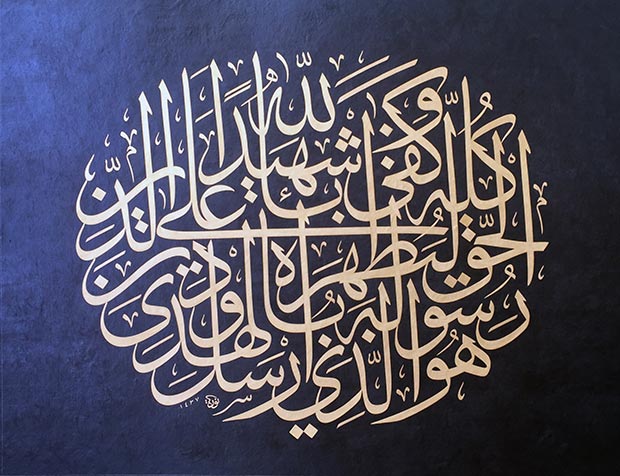 هو الذي ارسل
رسوله بالهدى ودين
الحق ليظهره على الدين
كله وكفى بالله شهيدًا
١٤٣٧